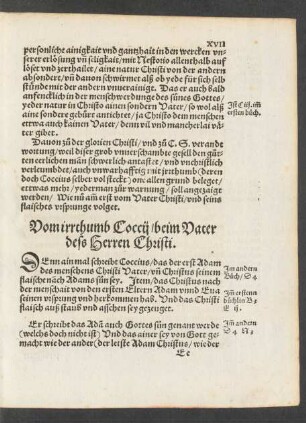 XVII
persönliche ainigkait vnd gantzhait in den wercken vn-
serer erlösung vñ seligkait/ mit Nestorio allenthalb auf
löset vnd zerthailet/ aine natur Christi von der andern
absondert/ vñ dauon schwirmet alß ob yede für sich selb
stünde mit der andern vnuerainigt. Das er auch bald
anfencklich in der menschwerdunge des sünes Gottes/
yeder natur in Christo ainen sondern Vater/ so wol alß
aine sondere gebürt antichtet/ ja Christo dem menschen
etwa auch kainen Vater/ denn vil vnd mancherlai vä-
ter gibet.
Ist Ciij. im̃
ersten büch.
Dauon zů der glorien Christi/ vnd zů C. S. verant
wortung/ weil diser grob vnuerschambte gesell den gůt-
ten eerlichen man schwerlich antastet/ vnd vnchristlich
verleumbdet/ auch vnwarhafftig mit jrrthumb (deren
doch Coccius selber vol steckt) one allen grund beleget/
etwas nicht/ yederman zůr warnung/ soll angezaigt
werden/ Wie nů am erst vom Vater Christi/ vnd seins
flaisches vrsprunge volget.
Vom irrthumb Coccij/ beim Vater
deß Herren Christi.
DEm ain mal schreibt Coccius/ das der erst Adam
des menschens Christi Vater/ vñ Christus seinem
flaische nach Adams sün sey. Item/ das Christus nach
der menschait von den ersten Eltern Adam vnnd Eua
seinen vrsprung vnd herkommen hab. Vnd das Christi
flaisch auß staub vnd asschen sey gezeuget.
Im andern
Büch/ D 4
Im̃ ersten
büchlin B.
E ij.
Er schreibt das Adã auch Gottes sün genant werde
(welchs doch nicht ist) Vnd das ainer sey von Gott ge-
macht wie der ander (der letste Adam Christus/ wie der
Im̃ andern
D 4
Ee